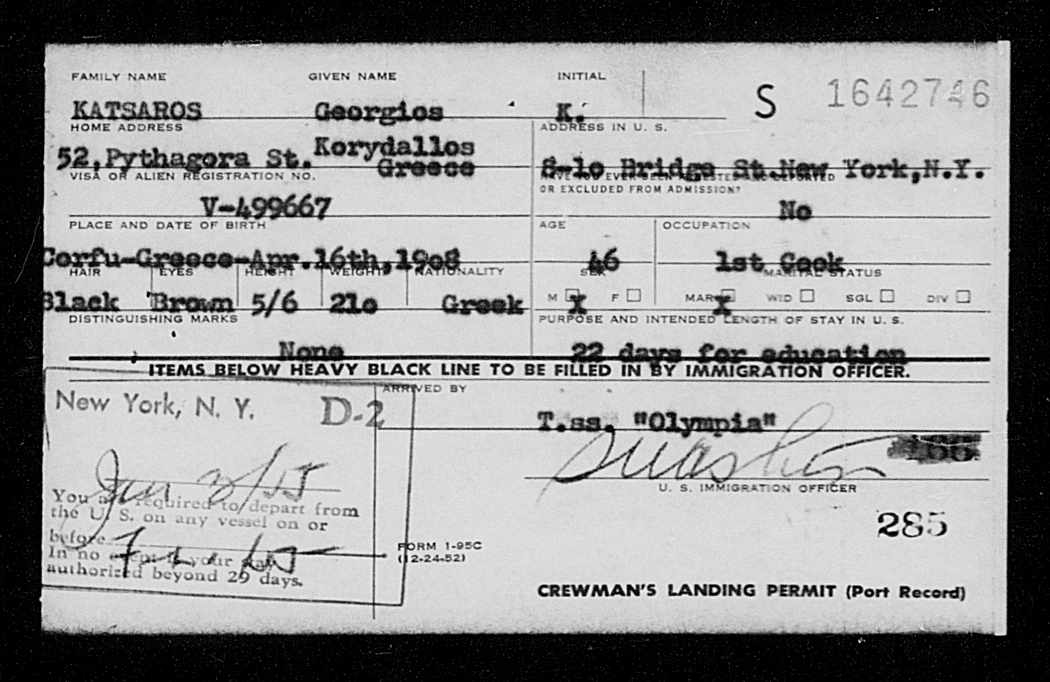 FAMILY NAME GIVEN NAME INITIAL
KATSAROS Georgios K. S 1642746
HOME ADDRESS ADDRESS IN U. S.
52,Pythagora St. Korydallos Greece 8-10 Bridge St.New York,N.Y.
VISA OR ALIEN REGISTRATION NO. HAVE YOU EVER BEEN ARRESTED AND DEPORTED
OR EXCLUDED FROM ADMISSION?
V-499667 No
PLACE AND DATE OF BIRTH AGE OCCUPATION
Corfu-Greece-Apr.16th,19o8 46 1st Cook
HAIR EYES HEIGHT WEIGHT NATIONALITY SEX MARITAL STATUS
Black Brown 5/6 21o Greek M X F MAR X WID SGL DIV
DISTINGUISHING MARKS PURPOSE AND INTENDED LENGTH OF STAY IN U. S.
None 22 days for education
ITEMS BELOW HEAVY BLACK LINE TO BE FILLED IN BY IMMIGRATION OFFICER.
ARRIVED BY
New York, N. Y. D-2
T.ss. "Olympia"
U. S. IMMIGRATION OFFICER
Jan 3/55
You are required to depart from
the U. S. on any vessel on or
before
In no event is your stay
authorized beyond 29 days.
285
FORM I-95C
(12-24-52)
CREWMAN'S LANDING PERMIT (Port Record)